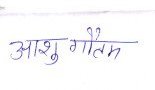 आशु गौतम